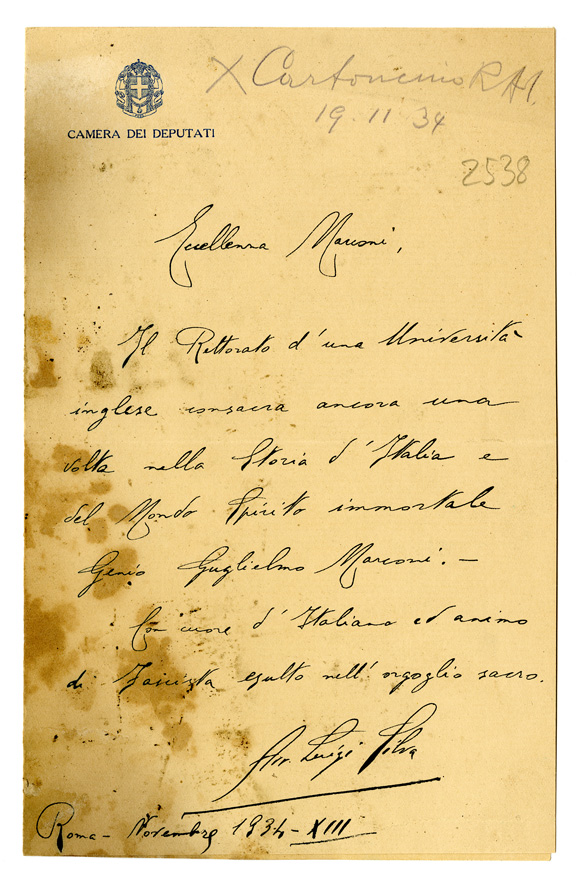 X Cartoncino R.A.I.
19 11 34
CAMERA DEI DEPUTATI
2538
Eccellenza Marconi,
Il Rettorato d'una Università
inglese consacra ancora una
volta nella Storia d'Italia e
del Mondo Spirito immortale
Genio Guglielmo Marconi. —
Con cuore d'Italiano ed animo
di Fascista esulto nell'orgoglio sacro.
Luigi Silva
Roma - Novembre 1934 - XIII